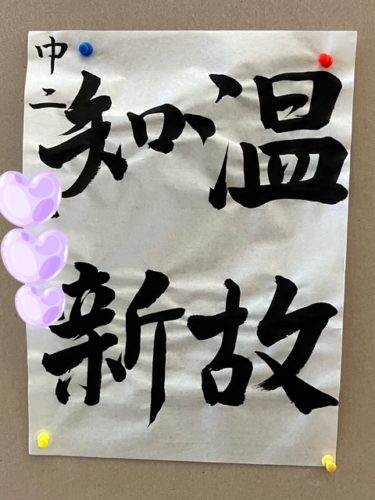 温故
知新
中二